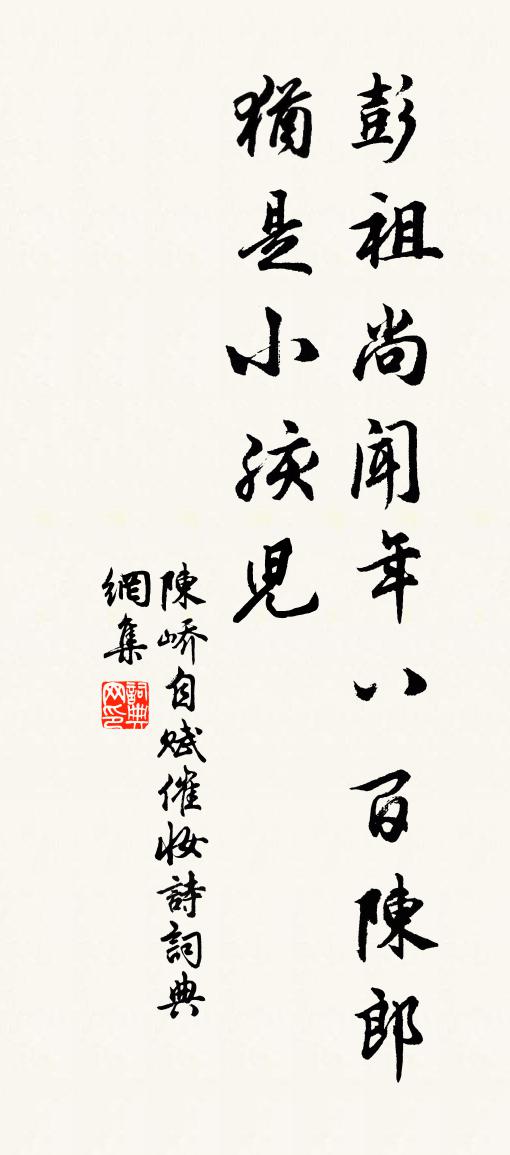 彭祖尚聞年八百陳郎
猶是小孩兒
陳嶠自賦催妝詩詞典
網集
詞典
网印